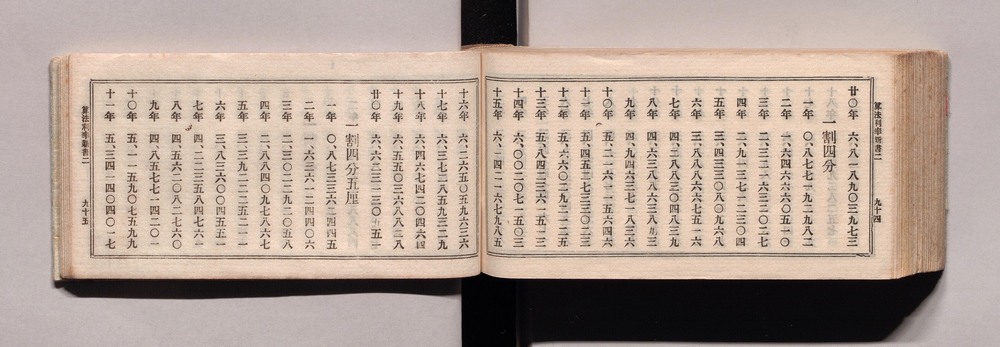 算法科學新書二　九十四
廿〇年　六、八一八九〇三九七三
一割四分
一年　〇、八七七一九二九八二
二年　一、六四六六六〇五一〇
三年　二、三二一六三二〇二七
四年　二、九一三七一二三〇四
五年　三、四三三〇八〇九六八
六年　三、八八八六六七五一六
七年　四、二八八三〇四八三九
八年　四、六三八八六三八九三
九年　四、九四六三七一八三六
十〇年　五、二一六一一五六四六
十一年　五、四五二七三三〇二三
十二年　五、六六〇二九二一二三
十三年　五、八四二三六一五一三
十四年　六、〇〇二〇七一五〇三
十五年　六、一四二一六七九八五
十六年　六、二六五〇五九六三六
十七年　六、三七二八五九三二九
十八年　六、四六七四二〇四六四
十九年　六、五五〇三六八八二八
廿〇年　六、六二三一三〇五五一
一割四分五厘
一年　〇、八七三三六二四四五
二年　一、六三六一二四四〇六
三年　二、三〇二二九二〇五八
四年　二、八八四〇九七八六七
五年　三、三九二二二五二一一
六年　三、八三六〇〇四五五一
七年　四、二二三五八四七六一
八年　四、五六二〇八二七六〇
九年　四、八五七七一四二〇一
十〇年　五、一一五九〇七五九九
十一年　五、三四一四〇四〇一七
算法科學新書二　九十五